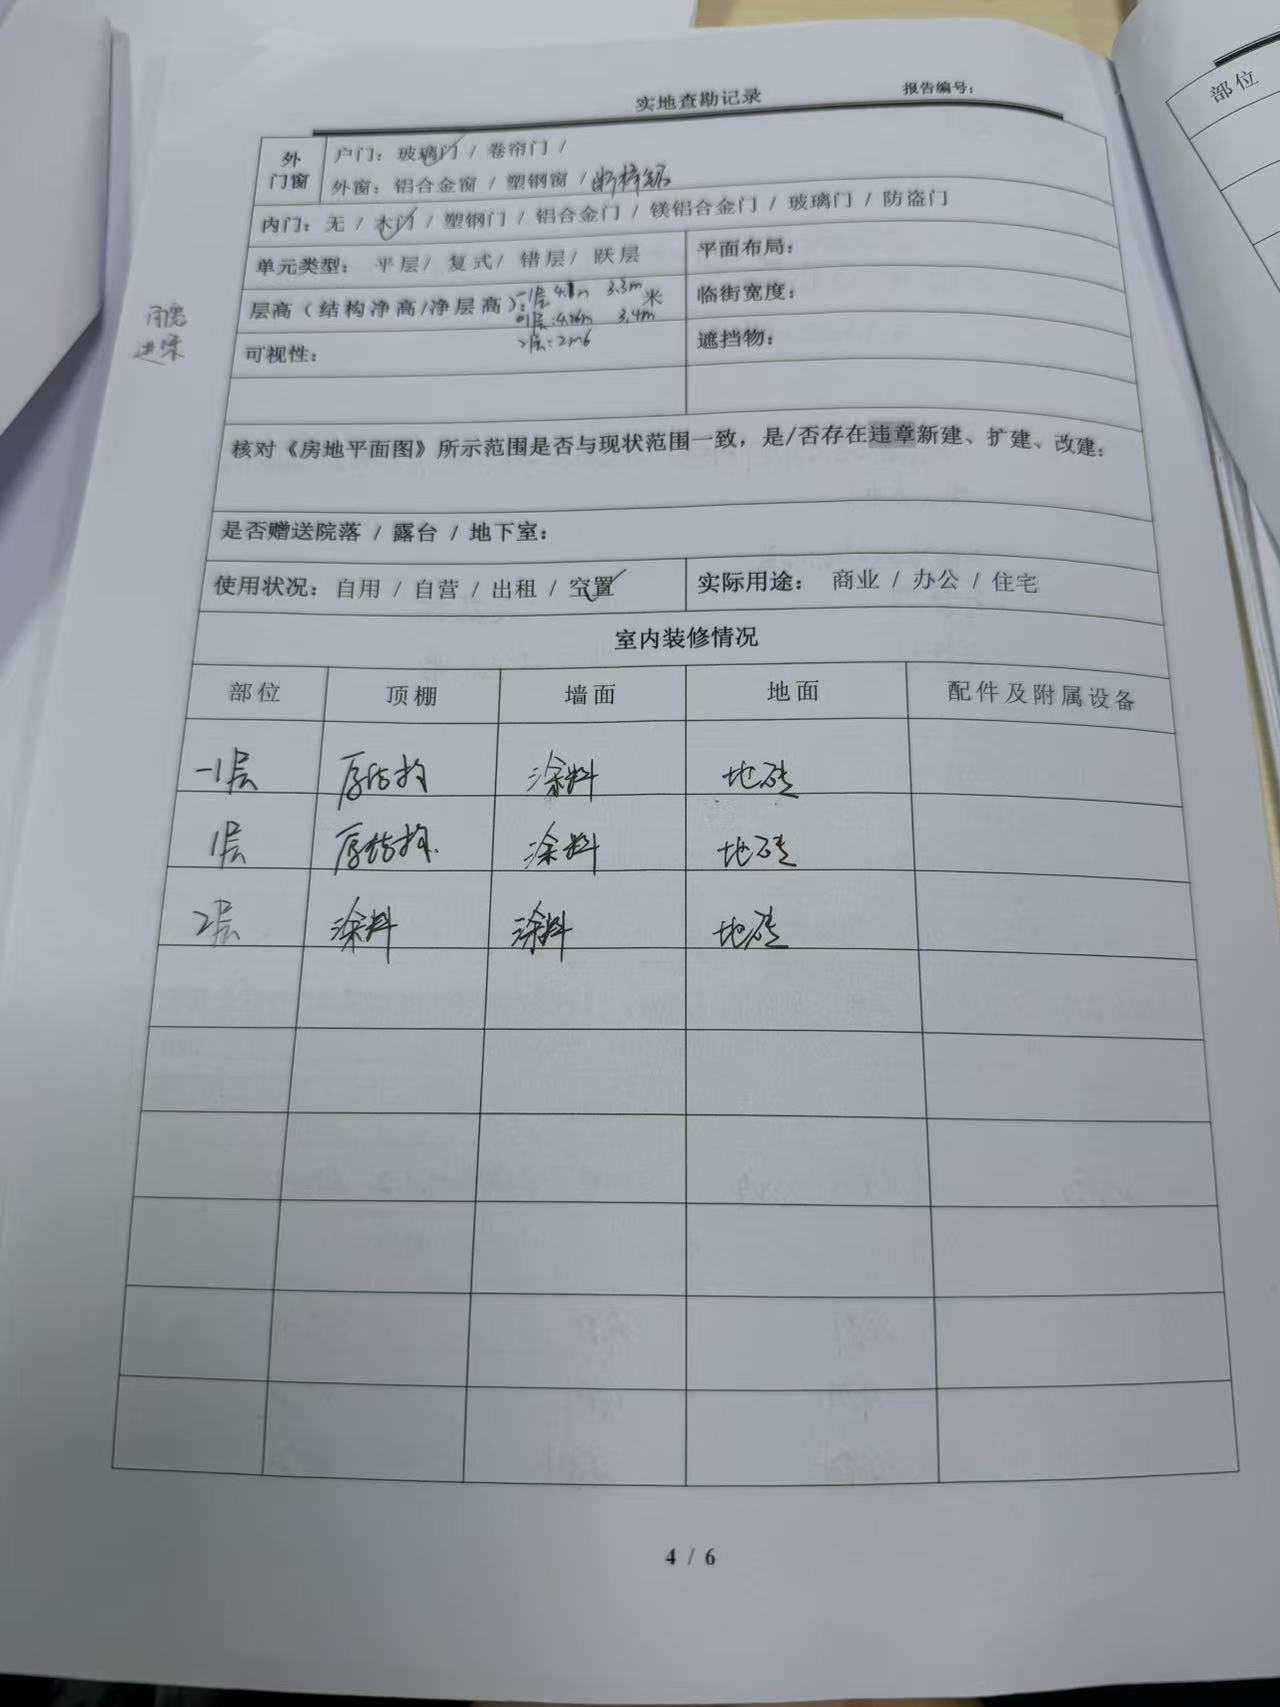 实地查勘记录 报告编号：
部位
外门窗 户门：玻璃门 / 卷帘门 /
外窗：铝合金窗 / 塑钢窗 / 断桥铝
内门：无 / 木门 / 塑钢门 / 铝合金门 / 镁铝合金门 / 玻璃门 / 防盗门
单元类型： 平层/ 复式/ 错层/ 跃层 平面布局：
层高（结构净高/净层高）： 米 临街宽度：
-1层 3.3m
1层:4.26m 3.4m
2层:2m6
进深
可视性： 遮挡物：
核对《房地平面图》所示范围是否与现状范围一致，是/否存在违章新建、扩建、改建：
是否赠送院落 / 露台 / 地下室：
使用状况：自用 / 自营 / 出租 / 空置 实际用途： 商业 / 办公 / 住宅
室内装修情况
部位 顶棚 墙面 地面 配件及附属设备
-1层 原结构 涂料 地砖
1层 原结构 涂料 地砖
2层 涂料 涂料 地砖
4 / 6